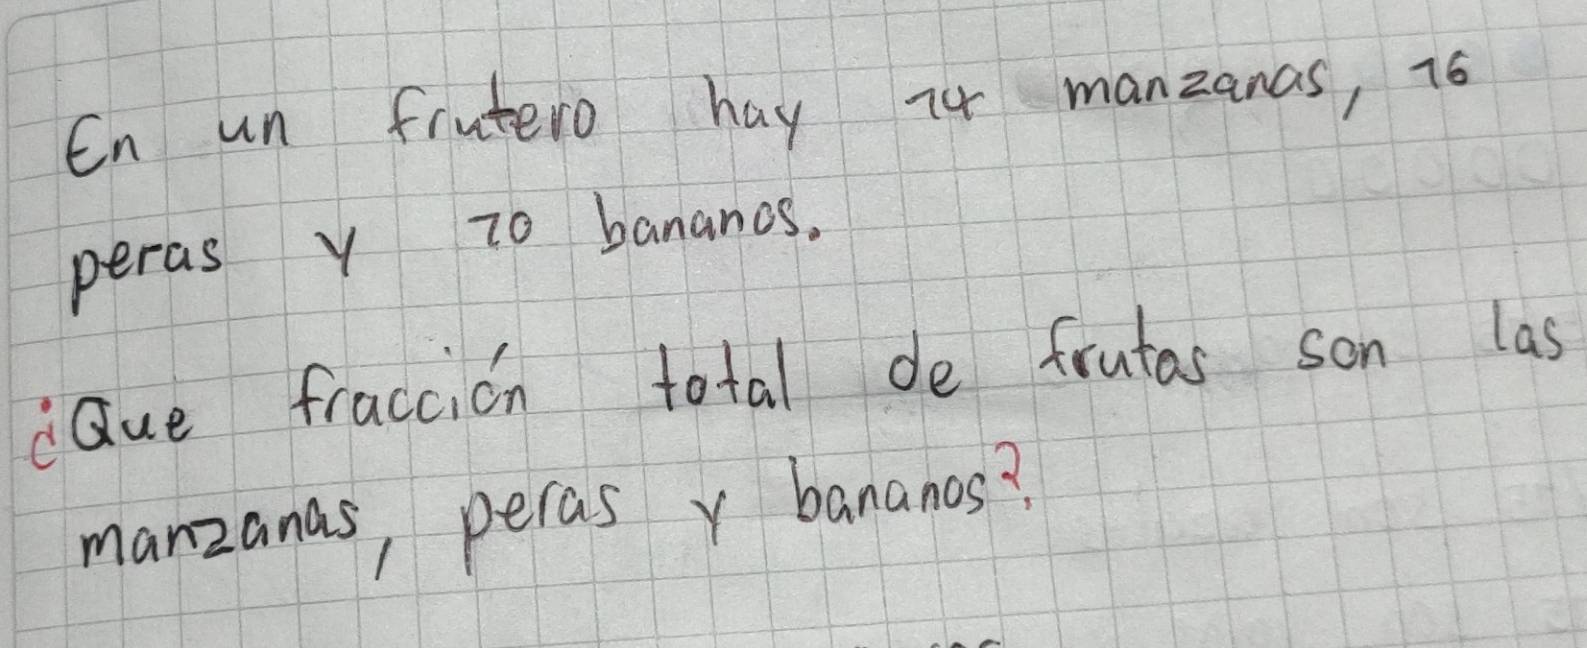 En un frutero hay 14 manzanas, 16
peras y 10 bananos.
¿Que fracción total de frutas son las
manzanas, peras y bananos?